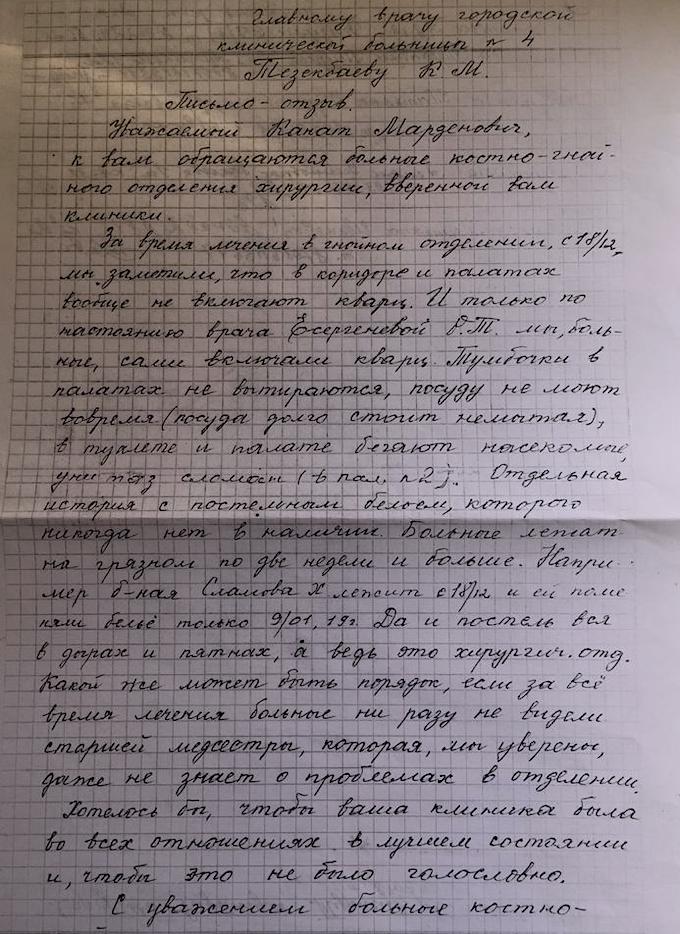 Главному врачу городской
клинической больницы № 4
Тезекбаеву К. М.
Письмо-отзыв.
Уважаемый Канат Марденович,
к вам обращаются больные костно-гной-
ного отделения хирургии, вверенной вам
клиники.
За время лечения в гнойном отделении, с 18/12,
мы заметили, что в коридоре и палатах
вообще не включают кварц. И только по
настоянию врача Есергеневой О.Т. мы, боль-
ные, сами включали кварц. Тумбочки в
палатах не вытираются, посуду не моют
вовремя (посуда долго стоит немытая),
в туалете и палате бегают насекомые,
унитаз сломан (в пал. №2). Отдельная
история с постельным бельем, которого
никогда нет в наличии. Больные лежат
на грязном по две недели и больше. Напри-
мер б-ная Сламова Х лежит с 18/12 и ей поме
няли бельё только 9/01, 19г. Да и постель вся
в дырах и пятнах, а ведь это хирургич. отд.
Какой же может быть порядок, если за всё
время лечения больные ни разу не видели
старшей медсестры, которая, мы уверены,
даже не знает о проблемах в отделении.
Хотелось бы, чтобы ваша клиничка была
во всех отношениях в лучшем состоянии
и, чтобы это не было голословно.
С уважением больные костно-